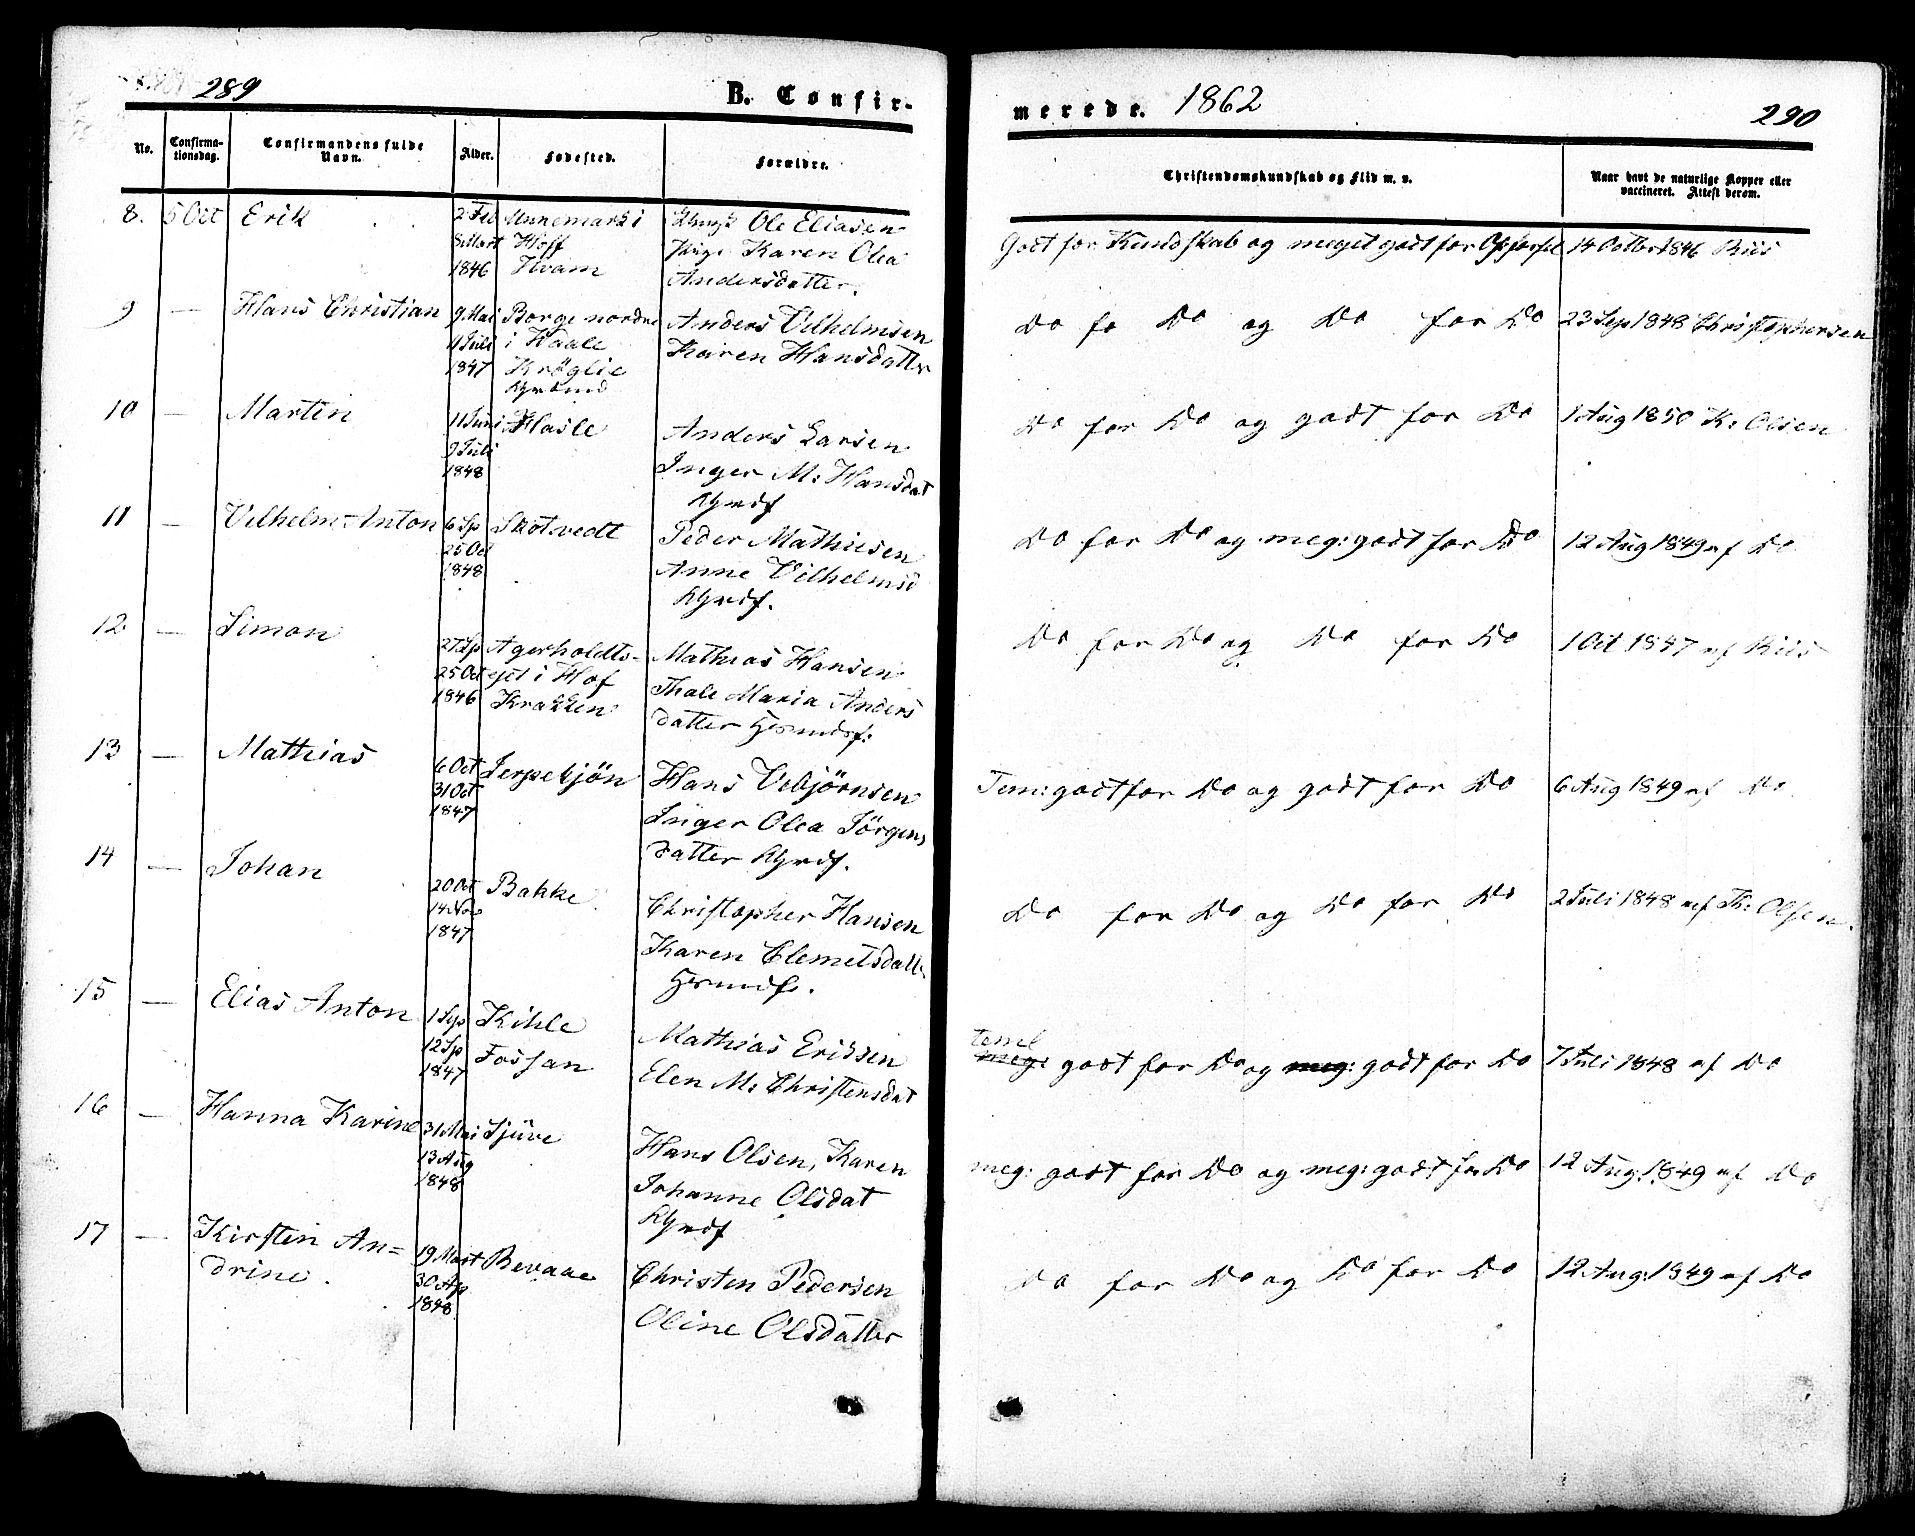 289
B. Confir-
No.
Confirma-
tionsdag.
Confirmandens fulde
Navn.
Alder.
Fødested.
Forældre.
8. 5 Oct Erik
2 Feb
8 Mart
1846
Unnemark i
Hoff
Hvam
Ole Eliasen
Pige Karen Olea
Andersdatter.
9 — Hans Christian
9 Mai
11 Juli
1847
Borge nordre
i Haale
Krøglie
Anders Vilhelmsen
Karen Hansdatter
10 — Martin
11 Juni
9 Juli
1848
Hasle
Anders Larsen
Inger M: Hansdat
11 — Vilhelm Anton
6 Sp
25 Oct
1848
Skotvedt
Peder Mathiesen
Anne Vilhelmsd
12 — Simon
27 Sp
25 Oct
1846
Agerholdts-
ejet i Hof
Krakken
Mathias Hansen
Thale Maria Anders
datter
13 — Mathias
6 Oct
31 Oct
1847
Jerpekjön
Hans Vebjørnsen
Inger Olea Jörgens
datter
14 — Johan
20 Oct
14 Nov
1847
Bakke
Christopher Hansen
Karen Clemetsdatt
15 — Elias Anton
1 Sep
12 Sp
1847
Kihle
Fossan
Mathias Eriksen
Elen M: Christensdat
16 — Hanna Karine
31 Mai
13 Aug
1848
Sjüve
Hans Olsen, Karen
Johanne Olsdat
17 — Kirstin An=
drine.
19 Mart
30 Ap
1848
Bevaae
Christen Pedersen
Oline Olsdatter
merede. 1862
290
Christendomskundskab og Flid m. v.
Naar havt de naturlige Kopper eller
vaccineret. Attest derom.
Godt for Kundskab og meget godt for Opførsel 14 Octbr 1846 Riis
Do fo Do og Do for Do 23 Sep 1848 Christophersen
Do for Do og godt for Do 1 Aug 1850 K: Olsen
Do for Do og meg: godt for Do 12 Aug 1849 af Do
Do for Do og Do for Do 1 Oct 1847 af Riis
Tem: godt for Do og godt for Do 6 Aug 1849 af Do
Do for Do og Do for Do 2 Juli 1848 af Th: Olsen.
temel
meg: godt for Do og meg: godt for Do 7 Juli 1848 af Do
meg: godt for Do og meg: godt for Do 12 Aug. 1849 af Do
Do for Do og Do for Do 12 Aug: 1849 af Do